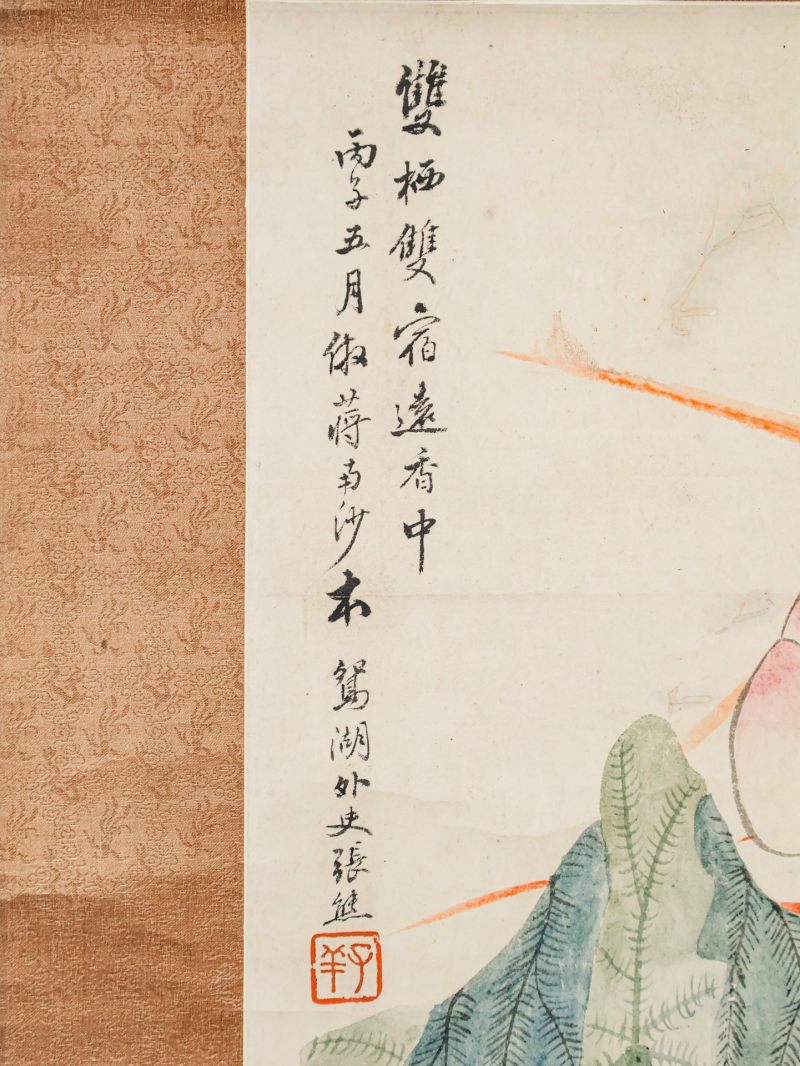 雙栖雙宿遠香中
丙子五月倣蔣南沙本 鴛湖外史張熊
子羊